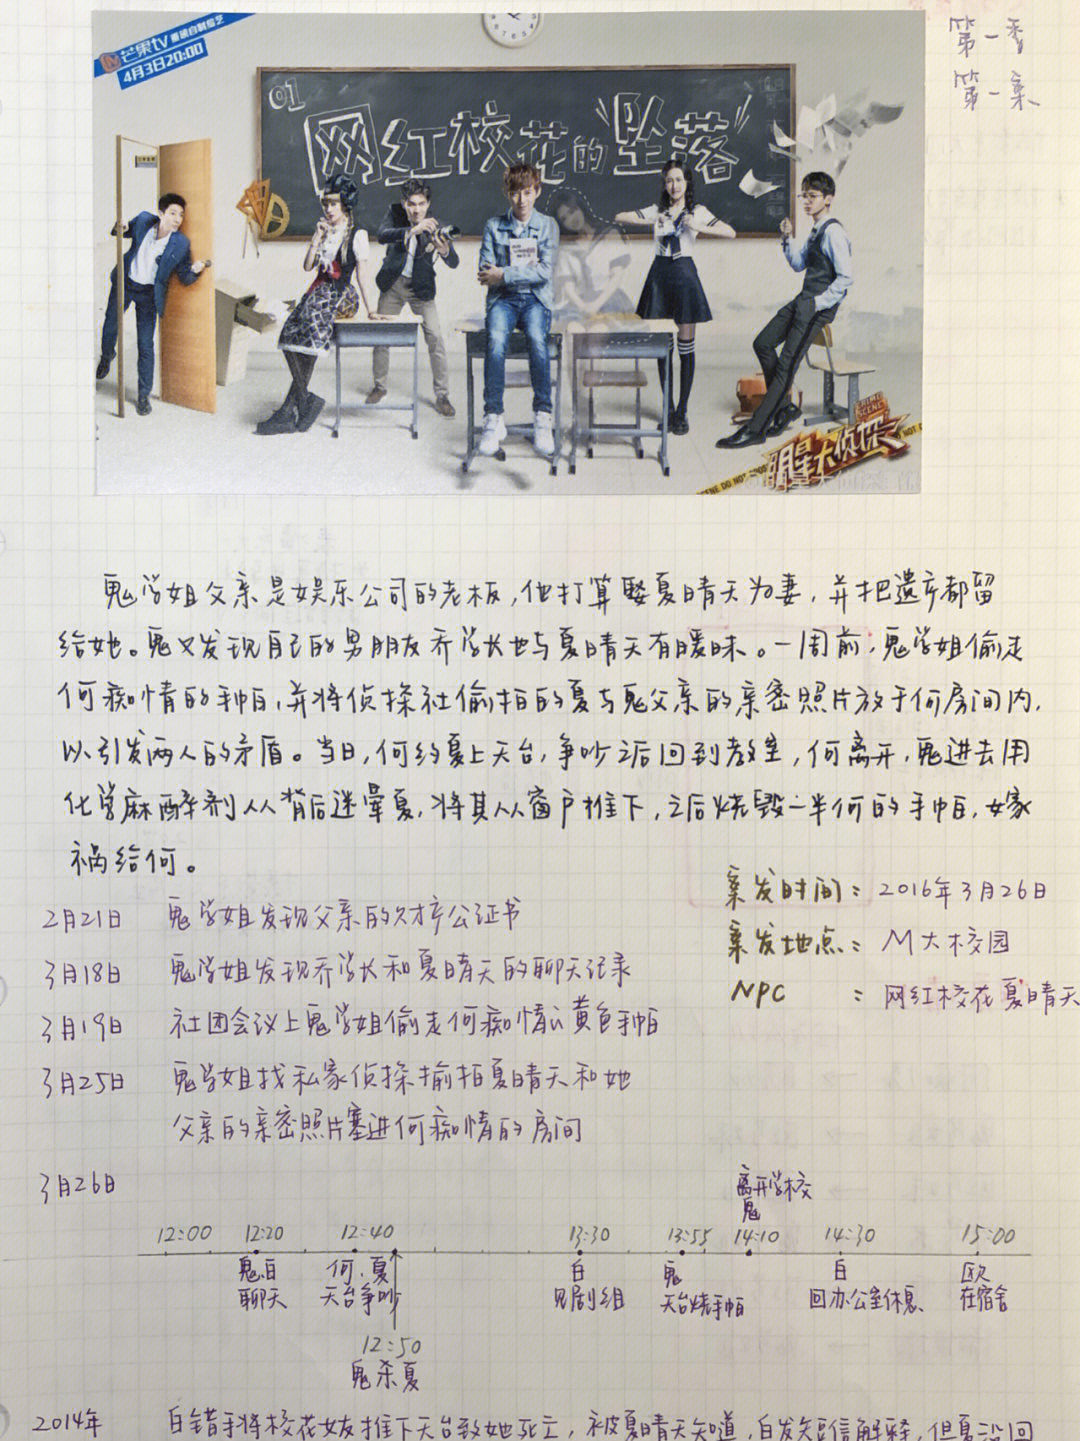 第一季
第一案
芒果tv 重磅自制综艺
4月3日20:00
01
网红校花的"坠落"
CRIME SCENE
明星大侦探
鬼学姐父亲是娱乐公司的老板,他打算娶夏晴天为妻,并把遗产都留
给她。鬼又发现自己的男朋友乔学长也与夏晴天有暧昧。一周前,鬼学姐偷走
何痴情的手帕,并将侦探社偷拍的夏与鬼父亲的亲密照片放于何房间内,
以引发两人的矛盾。当日,何约夏上天台,争吵之后回到教室,何离开,鬼进去用
化学麻醉剂从背后迷晕夏,将其从窗户推下,之后烧毁一半何的手帕,嫁
祸给何。
案发时间:2016年3月26日
案发地点:M大校园
NPC :网红校花夏晴天
2月21日 鬼学姐发现父亲的财产公证书
3月18日 鬼学姐发现乔学长和夏晴天的聊天记录
3月19日 社团会议上鬼学姐偷走何痴情的黄色手帕
3月25日 鬼学姐找私家侦探偷拍夏晴天和她
父亲的亲密照片塞进何痴情的房间
3月26日
离开学校
鬼
12:00 12:20 12:40 13:30 13:55 14:10 14:30 15:00
鬼.白 何.夏 白 鬼 白 欧
聊天 天台争吵 见剧组 天台烧手帕 回办公室休息 在宿舍
12:50
鬼杀夏
2014年 白错手将校花女友推下天台致她死亡,被夏晴天知道,白发短信解释,但夏没回